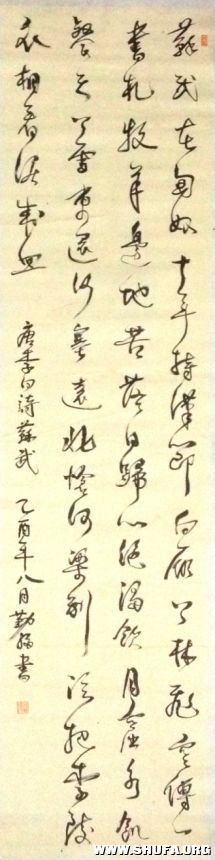 蘇武在匈奴十年持漢節白雁上林飛空傳一
書札牧羊邊地苦落日歸心絕渴飲月窟水飢
餐天上雪東還沙塞遠北愴河梁別泣把李陵
衣相看淚成血
唐李白詩蘇武 乙酉年八月勤書
WWW.SHUFA.ORG